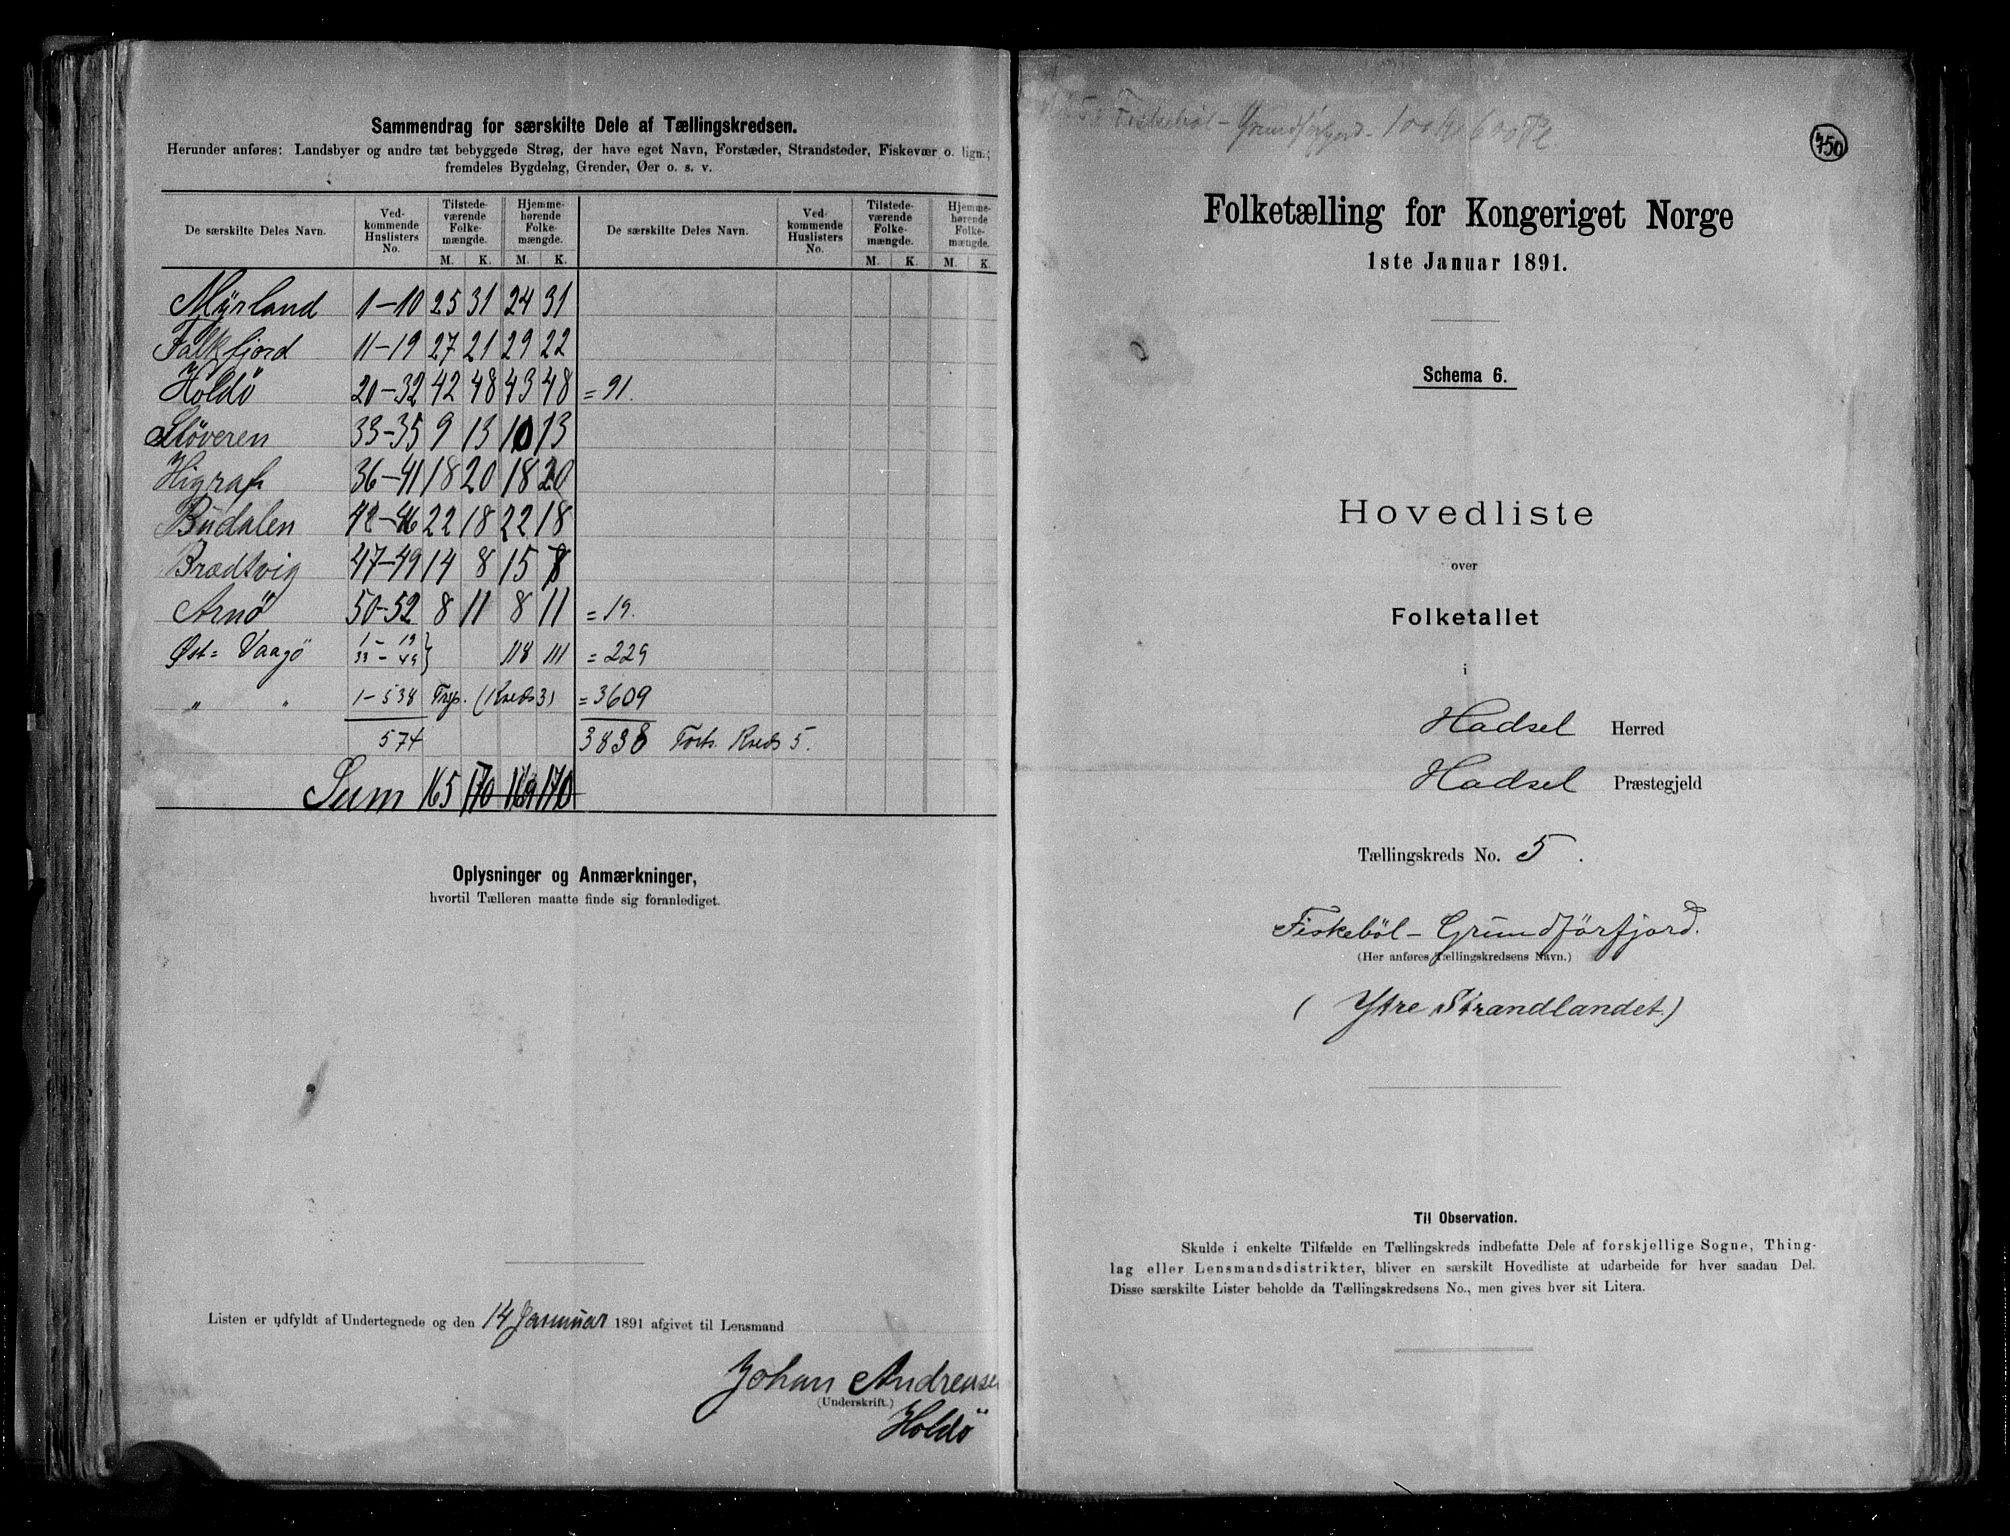 Sammendrag for særskilte Dele af Tællingskredsen.
Herunder anføres: Landsbyer og andre tæt bebyggede Strøg, der have eget Navn, Forstæder, Strandsteder, Fiskevær o. lign.;
fremdeles Bygdelag, Grender, Øer o. s. v.
De særskilte Deles Navn. Ved-kommende Huslisters No. Tilstede-værende Folke-mængde. Hjemme-hørende Folke-mængde. De særskilte Deles Navn. Ved-kommende Huslisters No. Tilstede-værende Folke-mængde. Hjemme-hørende Folke-mængde.
M. K. M. K. M. K. M. K.
Myrland 1-10 25 31 24 31
Falkfjord 11-19 27 21 29 22
Holdö 20-32 42 48 43 48 = 91.
Slöveren 33-35 9 13 10 13
Higraf 36-41 18 20 18 20
Budalen 42-46 22 18 22 18
Brædtvig 47-49 14 8 15 8
Arnö 50-52 8 11 8 11 = 19.
Øst= Vaagö 1-19 33-49 } 118 111 = 229
„ „ 1-538 Trsp. (Kreds 3) = 3609
574 3838 Forts. Kreds 5.
Sum 165 170 169 170
Oplysninger og Anmærkninger,
hvortil Tælleren maatte finde sig foranlediget.
Listen er udfyldt af Undertegnede og den 14 Januar 1891 afgivet til Lensmand
Johan Andreasen
(Underskrift.)
Holdö
Fiskeböl - Grundførfjord
750
Folketælling for Kongeriget Norge
1ste Januar 1891.
Schema 6.
Hovedliste
over
Folketallet
i
Hadsel Herred
Hadsel Præstegjeld
Tællingskreds No. 5.
Fiskeböl - Grundförfjord.
(Her anføres Tællingskredsens Navn.)
(Ytre Strandlandet)
Til Observation.
Skulde i enkelte Tilfælde en Tællingskreds indbefatte Dele af forskjellige Sogne, Thing-
lag eller Lensmandsdistrikter, bliver en særskilt Hovedliste at udarbeide for hver saadan Del.
Disse særskilte Lister beholde da Tællingskredsens No., men gives hver sit Litera.